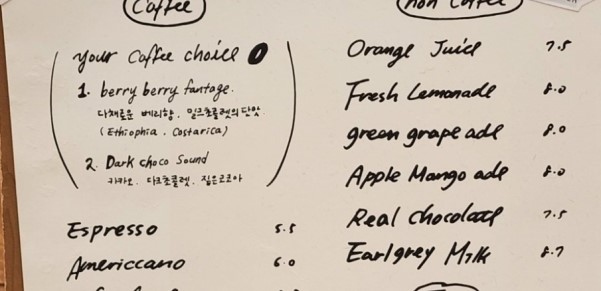 Coffee
your Coffee choice
1. berry berry fantage.
다채로운 베리향, 밀크초콜렛의 단맛
(Ethiophia, Costarica)
2. Dark choco Sound
카카오, 다크초콜렛, 짙은코코아
Espresso 5.5
Americcano 6.0
non Coffee
Orange Juice 7.5
Fresh Lemonade 8.0
green grape ade 8.0
Apple Mango ade 8.0
Real chocolate 7.5
Earlgrey Milk 8.7